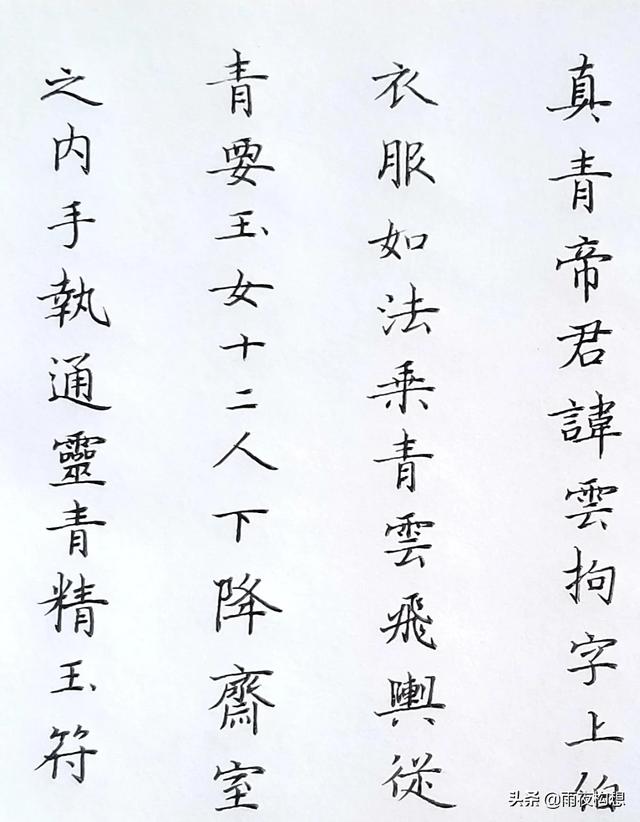 真青帝君諱雲拘字上伯
衣服如法乗青雲飛輿從
青要玉女十二人下降齋室
之内手執通靈青精玉符
头条 @雨夜构想